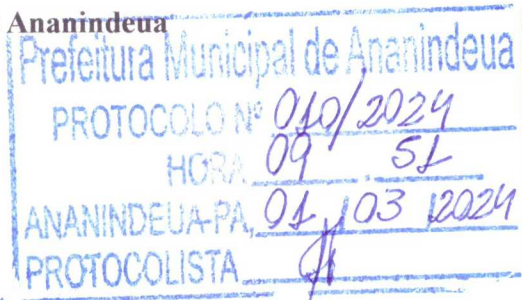 Ananindeua
Prefeitura Municipal de Ananindeua
PROTOCOLO Nº 010/2024
HORA 09 . 51
ANANINDEUA-PA, 01 / 03 / 2024
PROTOCOLISTA